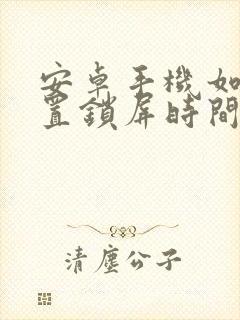 安卓手機如
置鎖屏時間
清塵公子